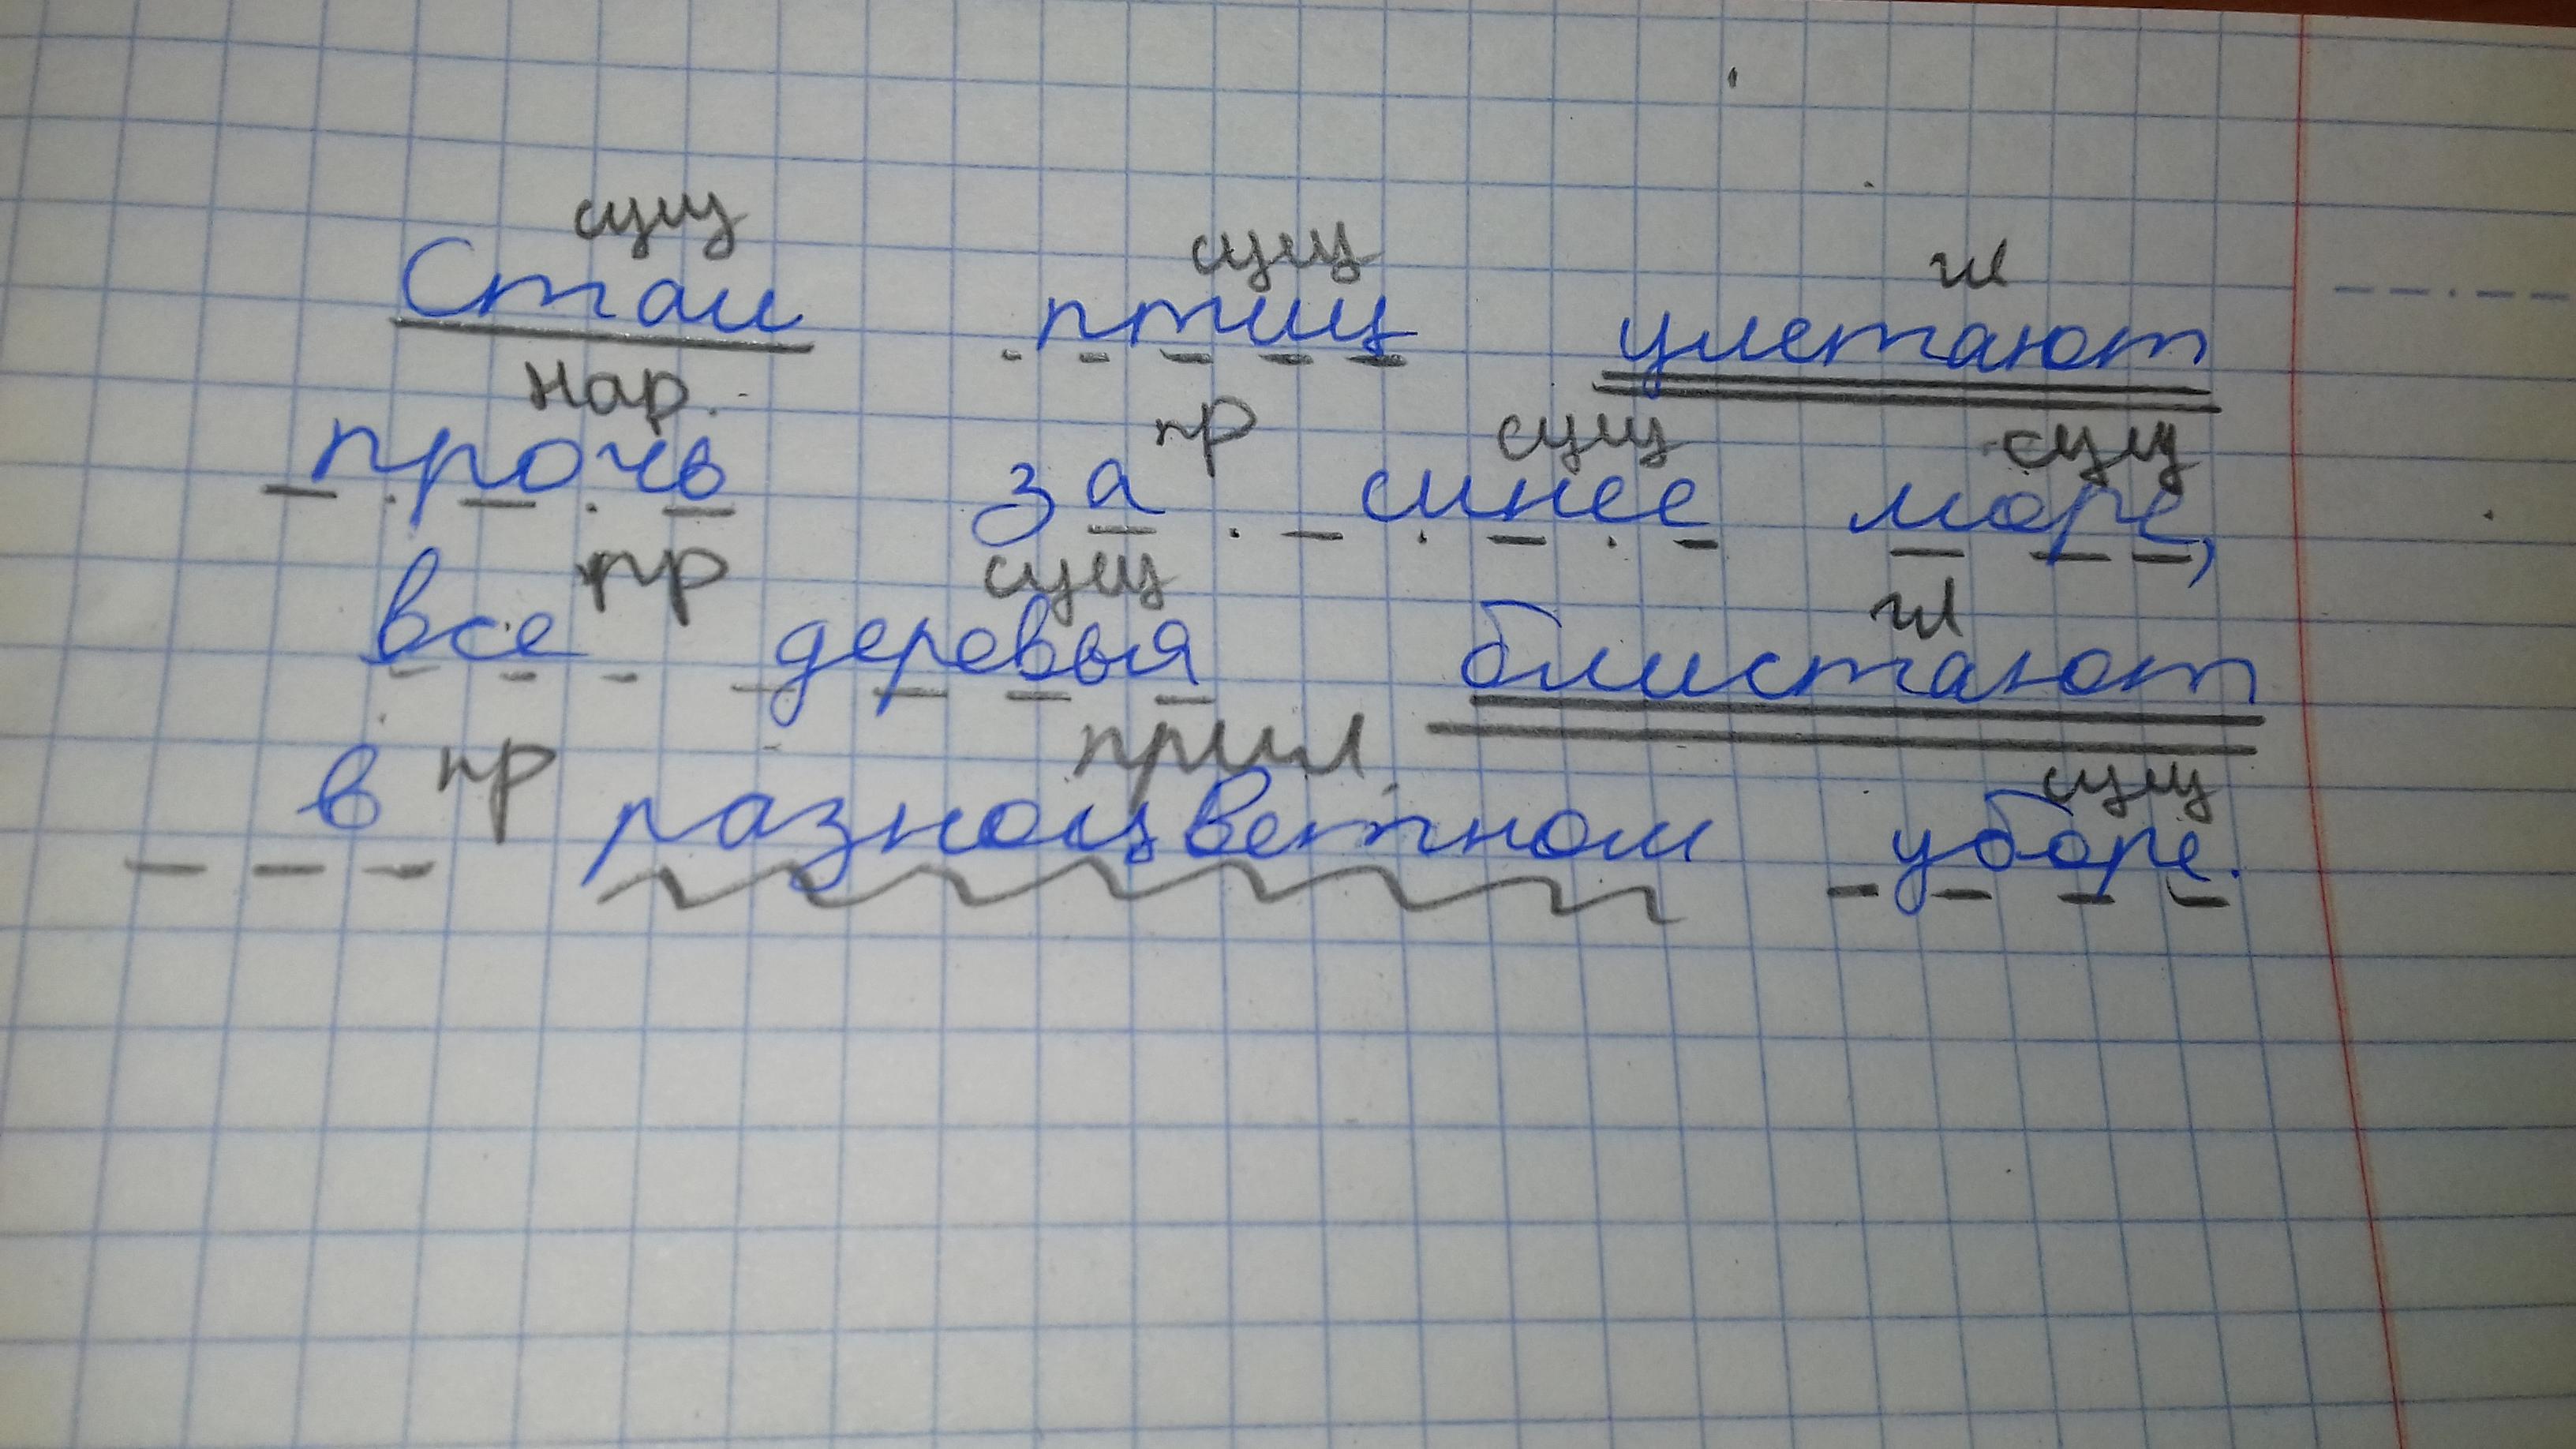 сущ сущ гл
Стаи птиц улетают
нар. пр сущ сущ
прочь за синее море,
пр сущ гл
все деревья блистают
пр прил.
в разноцветном уборе.
сущ